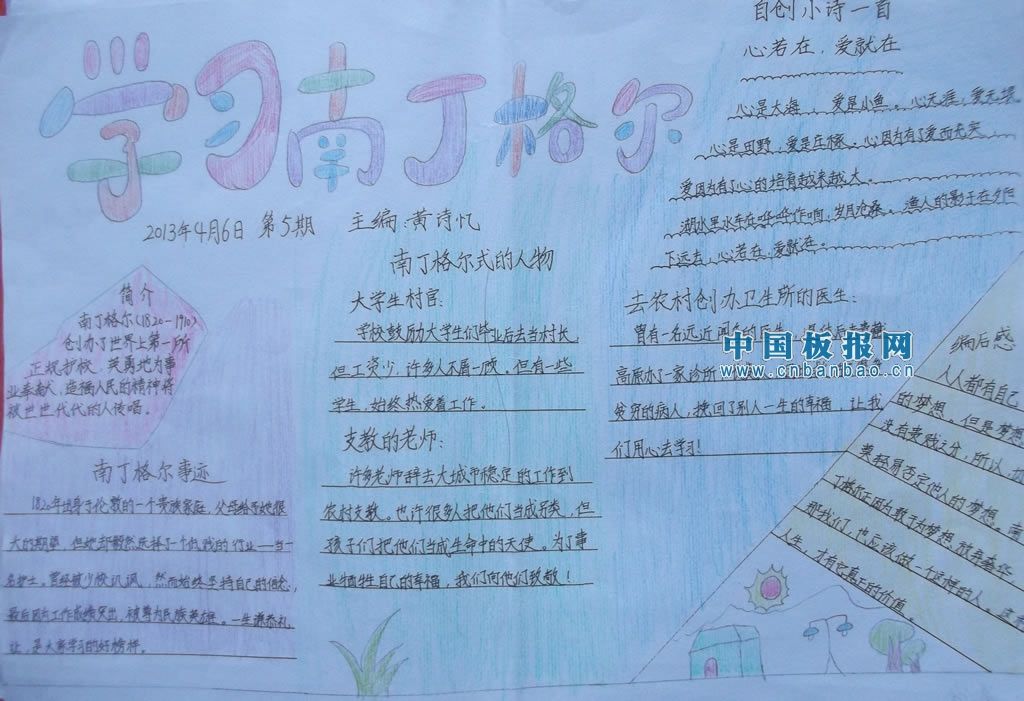 学习南丁格尔
2013年4月6日 第5期 主编:黄诗忆
简介
南丁格尔(1820-1910)
创办了世界上第一所
正规护校，英勇地为事
业奉献，造福人民的精神将
被世世代代的人传唱。
南丁格尔事迹
1820年出身于伦敦的一个贵族家庭，父母给予她很
大的期望，但她却毅然选择了一个低贱的行业——当一
名护士。曾经被少校讥讽，然而始终坚持自己的信念，
最后因为工作成绩突出，被尊为民族英雄。一生谦恭礼
让，是大家学习的好榜样。
南丁格尔式的人物
大学生村官:
学校鼓励大学生们毕业后去当村长，
但工资少，许多人不屑一顾。但有一些
学生，始终热爱着工作。
支教的老师:
许多老师辞去大城市稳定的工作到
农村支教。也许很多人把他们当成另类，但
孩子们把他们当成生命中的天使。为了事
业牺牲自己的幸福，我们向他们致敬!
自创小诗一首
心若在，爱就在
心是大海，爱是小鱼。心无涯，爱无垠
心是田野，爱是庄稼。心因为有了爱而充实
爱因为有了心的培育越来越大。
湖水里水车在哗哗作响，岁月沧桑。渔人的影子在夕阳
下远去，心若在，爱就在。
去农村创办卫生所的医生:
曾有一名远近闻名的医生
高原办了一家诊所
贫穷的病人，挽回了别人一生的幸福，让我
们用心去学习!
中国板报网
www.cnbanbao.cn
编后感
人人都有自己
的梦想，但是梦想
没有贵贱之分，所以，
要轻易否定他人的梦想。南
丁格尔正因为敢于为梦想放弃奢华，
那我们，也应该做一个这样的人。
人生，才有它真正的价值。